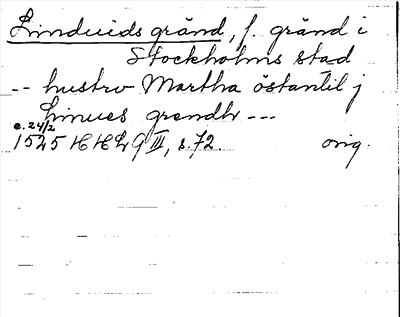 Linduids gränd, f. gränd i
Stockholms stad
-- hustro Martha östantil j
Linues grendh ---
e. 24/2
1525 HHL 9 III, s. 72. orig.